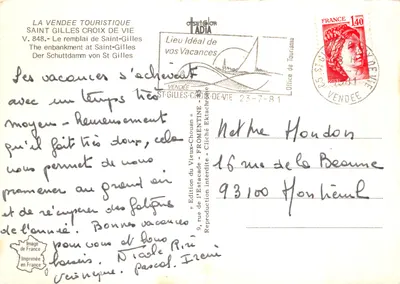 LA VENDEE TOURISTIQUE
SAINT GILLES CROIX DE VIE
V. 848.- Le remblai de Saint-Gilles
The enbankment at Saint-Gilles
Der Schuttdamm von St Gilles
Les vacances s'achèvent
avec un temps très
moyen - heureusement
qu'il fait très doux, cela
nous permet de nous
promener au grand air
et de récupérer des fatigues
de l'année. Bonnes vacances
pour vous et bons
baisers. Nicole
Véronique Pascal
Image
de France
Imprimée
en France
« Edition du Vieux-Chouan »
FROMENTINE - 85
Reproduction interdite - Cliché
Lieu Idéal de
vos Vacances
Office de Tourisme
ST-GILLES-CROIX-DE-VIE 23-7-81
REPUBLIQUE FRANÇAISE
1,40
VENDEE
Maître
16 rue de la Beaune
93100 Montreuil